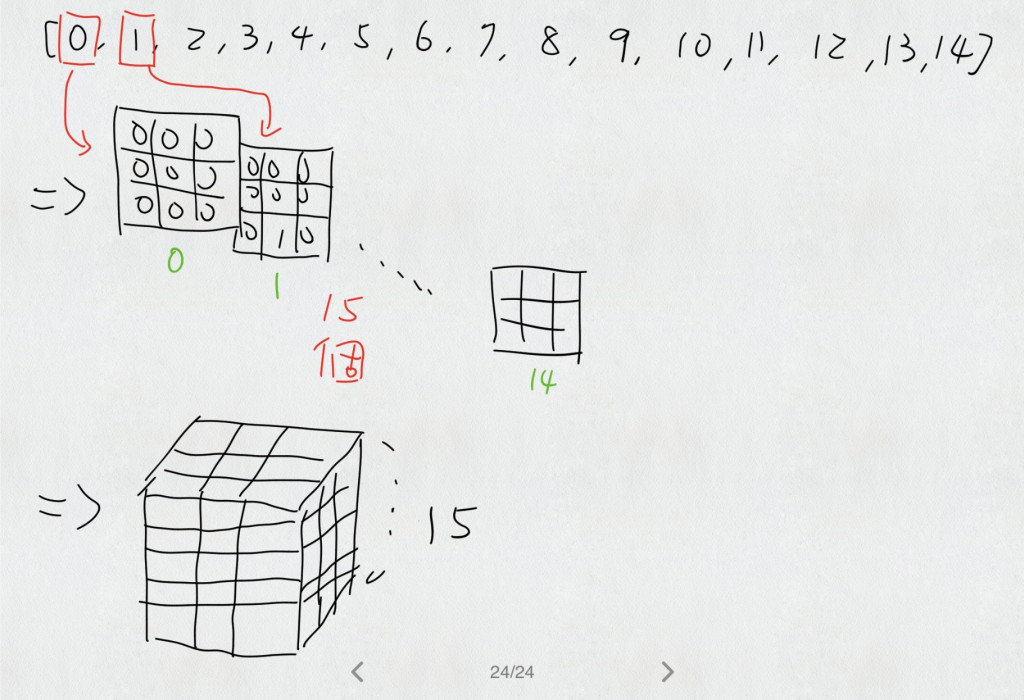 [0, 1, 2, 3, 4, 5, 6, 7, 8, 9, 10, 11, 12, 13, 14]
0 0 0
0 0 0
0 0 0
0 0 0
0 0 0
0 1 0
=>
0
1
15
個
14
=>
15
24/24